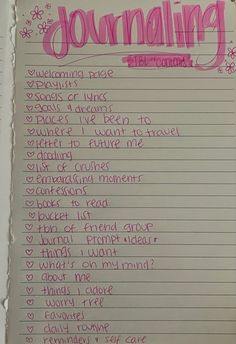 Journaling
TBL "content"
♡ welcoming page
♡ playlists
♡ songs or lyrics
♡ goals & dreams
♡ places I've been to
♡ where I want to travel
♡ letter to future me
♡ doodling
♡ list of crushes
♡ embarassing moments
♡ confessions
♡ books to read
♡ bucket list
♡ tbh of friend group
♡ Journal prompt ideas
♡ things I want
♡ what's on my mind?
♡ about me
♡ things I adore
♡ worry tree
♡ Favorites
♡ daily routine
♡ reminders & self care